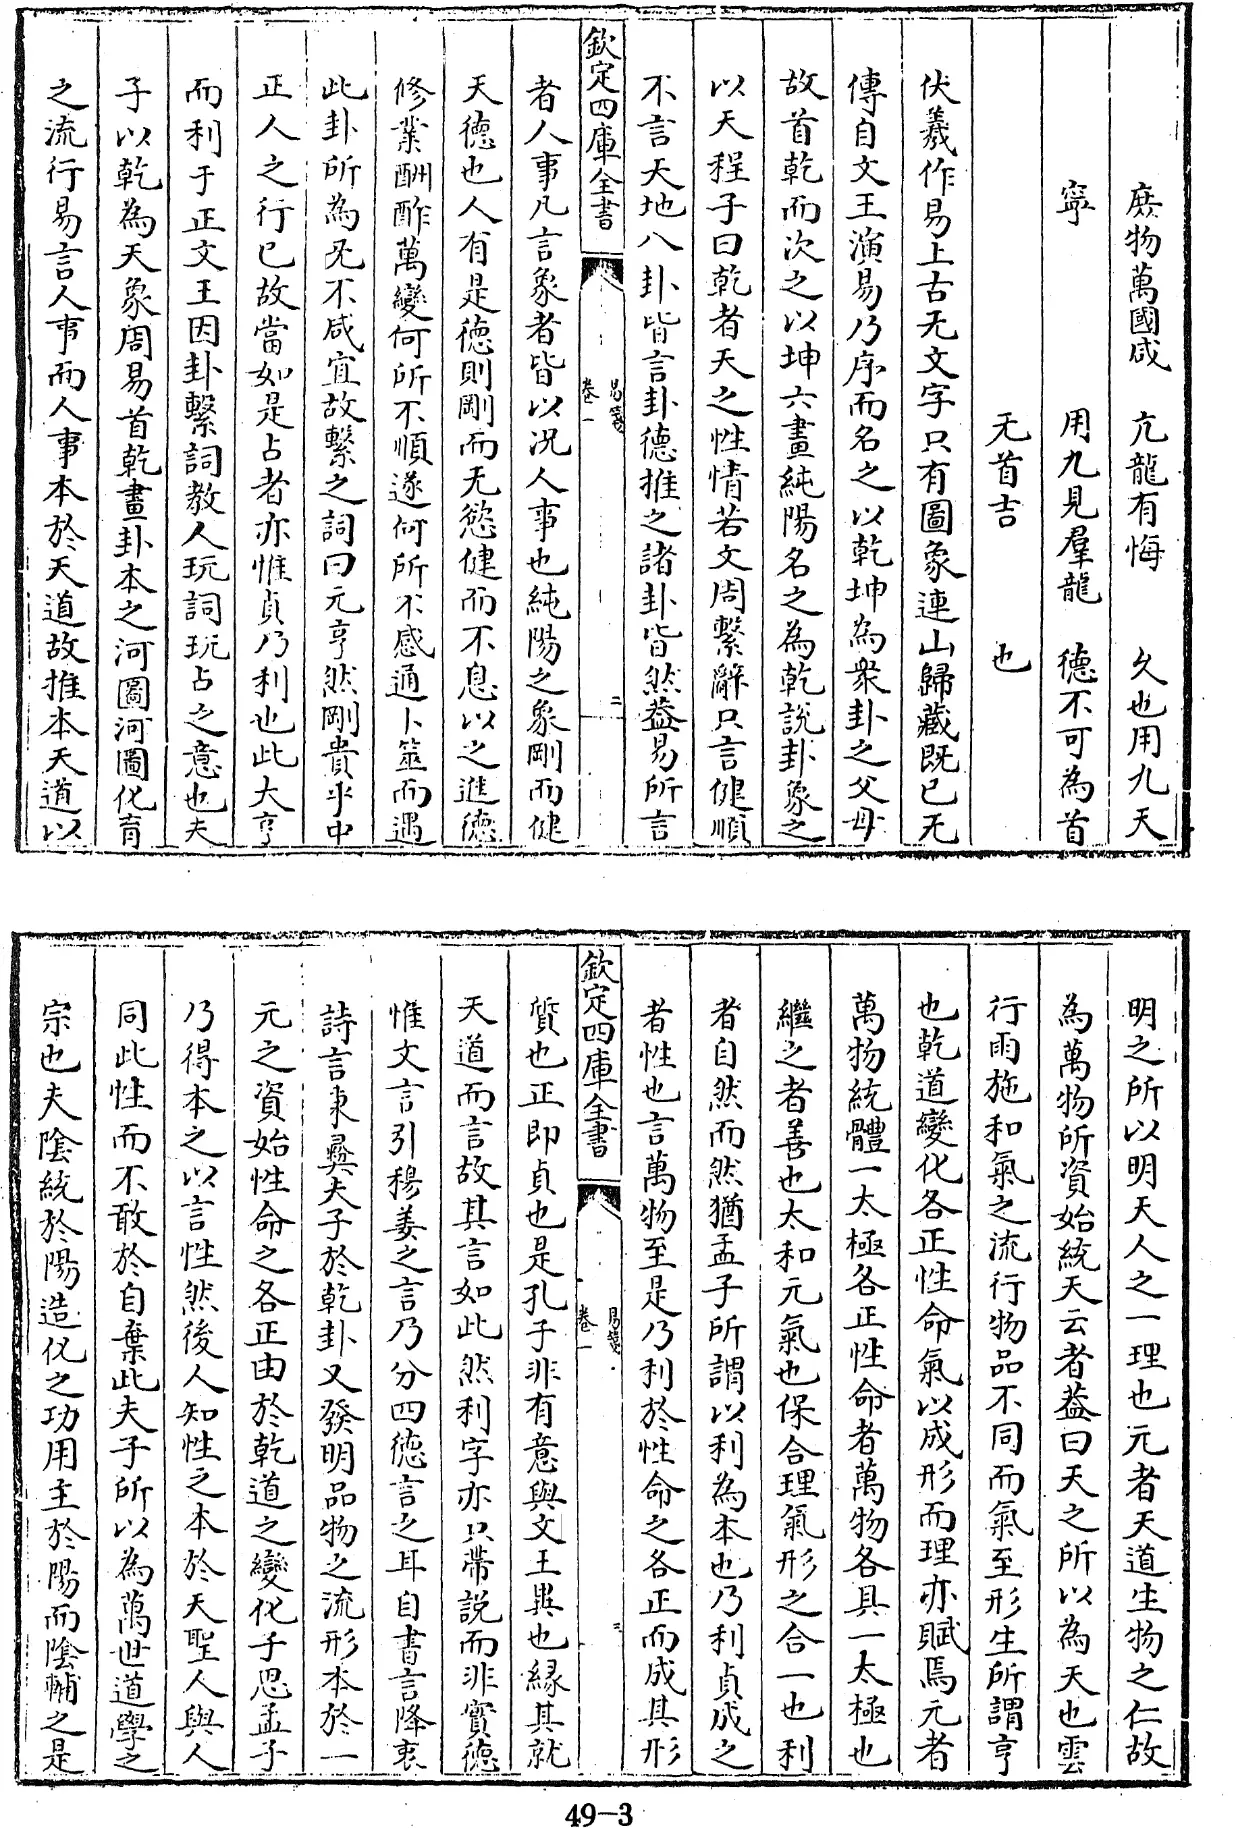 庶物萬國咸　亢龍有悔　久也用九天
寧　用九見羣龍　德不可為首
无首吉　也
伏羲作易上古无文字只有圖象連山歸藏既已无
傳自文王演易乃序而名之以乾坤為衆卦之父母
故首乾而次之以坤六畫純陽名之為乾說卦象之
以天程子曰乾者天之性情若文周繫辭只言健順
不言天地八卦皆言卦德推之諸卦皆然葢易所言
欽定四庫全書
易箋
卷一
二
者人事凡言象者皆以况人事也純陽之象剛而健
天德也人有是德則剛而无慾健而不息以之進德
修業酬酢萬變何所不順遂何所不感通卜筮而遇
此卦所為无不咸宜故繫之詞曰元亨然剛貴乎中
正人之行已故當如是占者亦惟貞乃利也此大亨
而利于正文王因卦繫詞教人玩詞玩占之意也夫
子以乾為天象周易首乾畫卦本之河圖河圖化育
之流行易言人事而人事本於天道故推本天道以
明之所以明天人之一理也元者天道生物之仁故
為萬物所資始統天云者葢曰天之所以為天也雲
行雨施和氣之流行物品不同而氣至形生所謂亨
也乾道變化各正性命氣以成形而理亦賦焉元者
萬物統體一太極各正性命者萬物各具一太極也
繼之者善也太和元氣也保合理氣形之合一也利
者自然而然猶孟子所謂以利為本也乃利貞成之
者性也言萬物至是乃利於性命之各正而成其形
欽定四庫全書
易箋
卷一
三
質也正即貞也是孔子非有意與文王異也緣其就
天道而言故其言如此然利字亦只帶説而非實德
惟文言引穆姜之言乃分四德言之耳自書言降衷
詩言秉彛夫子於乾卦又發明品物之流形本於一
元之資始性命之各正由於乾道之變化子思孟子
乃得本之以言性然後人知性之本於天聖人與人
同此性而不敢於自棄此夫子所以為萬世道學之
宗也夫陰統於陽造化之功用主於陽而陰輔之是
49-3